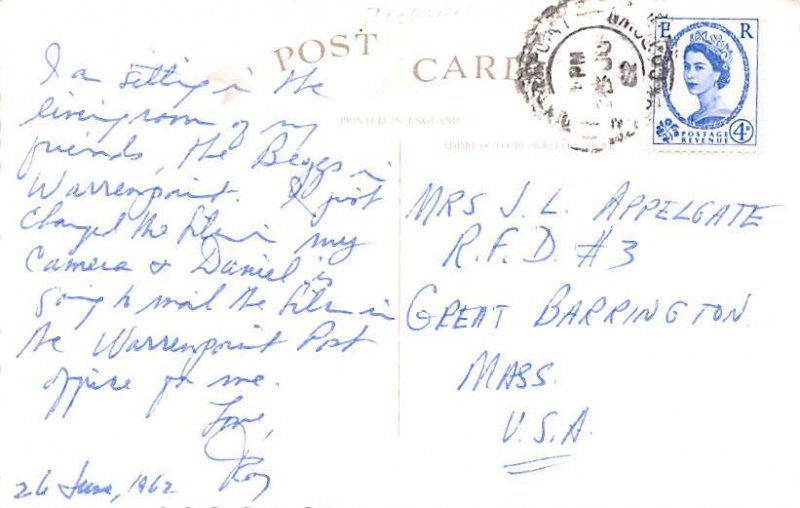 POST CARD
PRINTED IN ENGLAND
ADDRESS TO BE WRITTEN HERE
I am sitting in the
living room of my
friends, the Beggs in
Warrenpoint. I just
changed the film in my
Camera & Daniel is
going to mail the film in
the Warrenpoint Post
office for me.
Love,
Roy
26 June, 1962
E R
POSTAGE
REVENUE
4D
MRS J. L. APPELGATE
R.F.D. #3
GREAT BARRINGTON
MASS.
U.S.A.